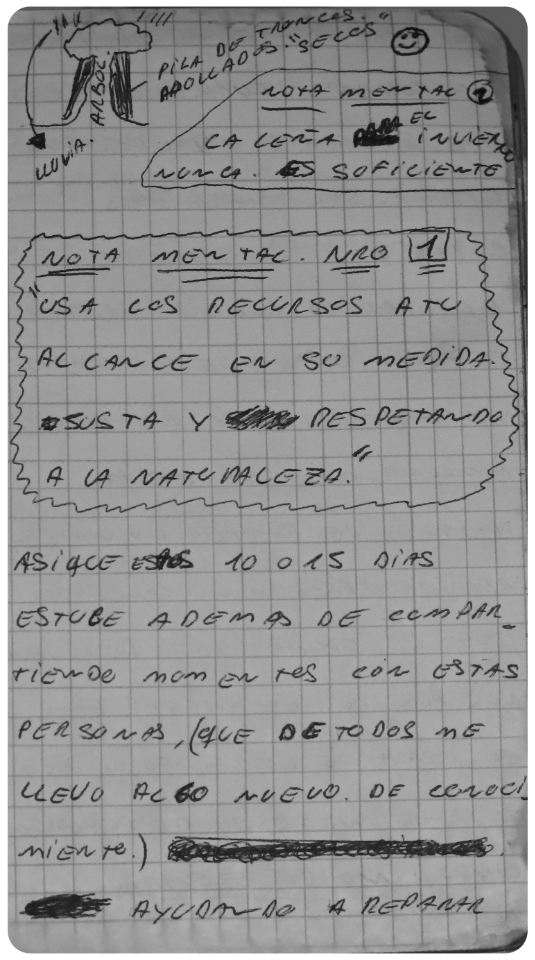 PILA DE TRONCOS.
APOLLADOS. "SECOS"
ARBOL.
LLUVIA.
NOTA MENTAL 2
LA LEÑA PARA EL INVIERNO
NUNCA. ES SUFICIENTE
NOTA MENTAL. NRO 1
"USA LOS RECURSOS A TU
ALCANCE EN SU MEDIDA.
JUSTA Y RESPETANDO
A LA NATURALEZA."
ASIQUE ESTOS 10 O 15 DIAS
ESTUBE ADEMAS DE COMPAR_
TIENDO MOMENTOS CON ESTAS
PERSONAS, (QUE DE TODOS ME
LLEVO ALGO NUEVO. DE CONOCI_
MIENTO.)
AYUDANDO A REPARAR